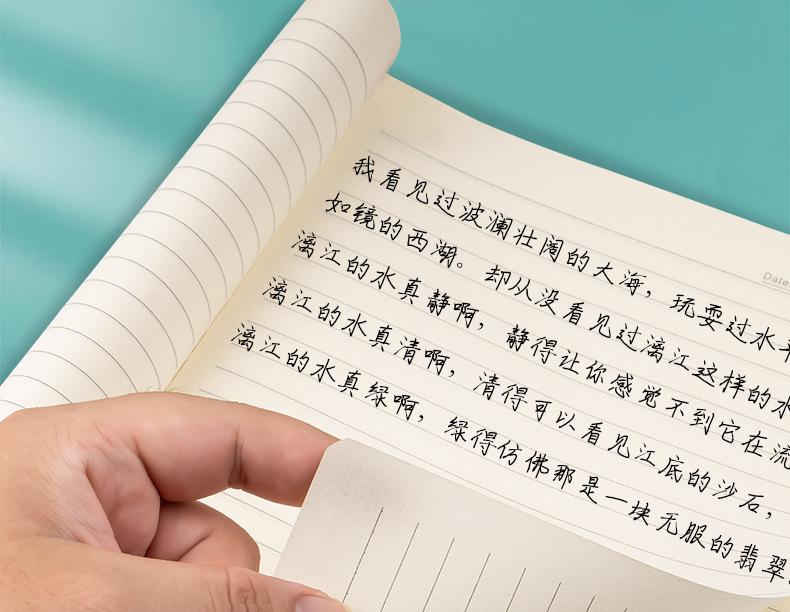 Date
我看见过波澜壮阔的大海，玩耍过水平
如镜的西湖。却从没看见过漓江这样的水
漓江的水真静啊，静得让你感觉不到它在流
漓江的水真清啊，清得可以看见江底的沙石，
漓江的水真绿啊，绿得仿佛那是一块无服的翡翠。